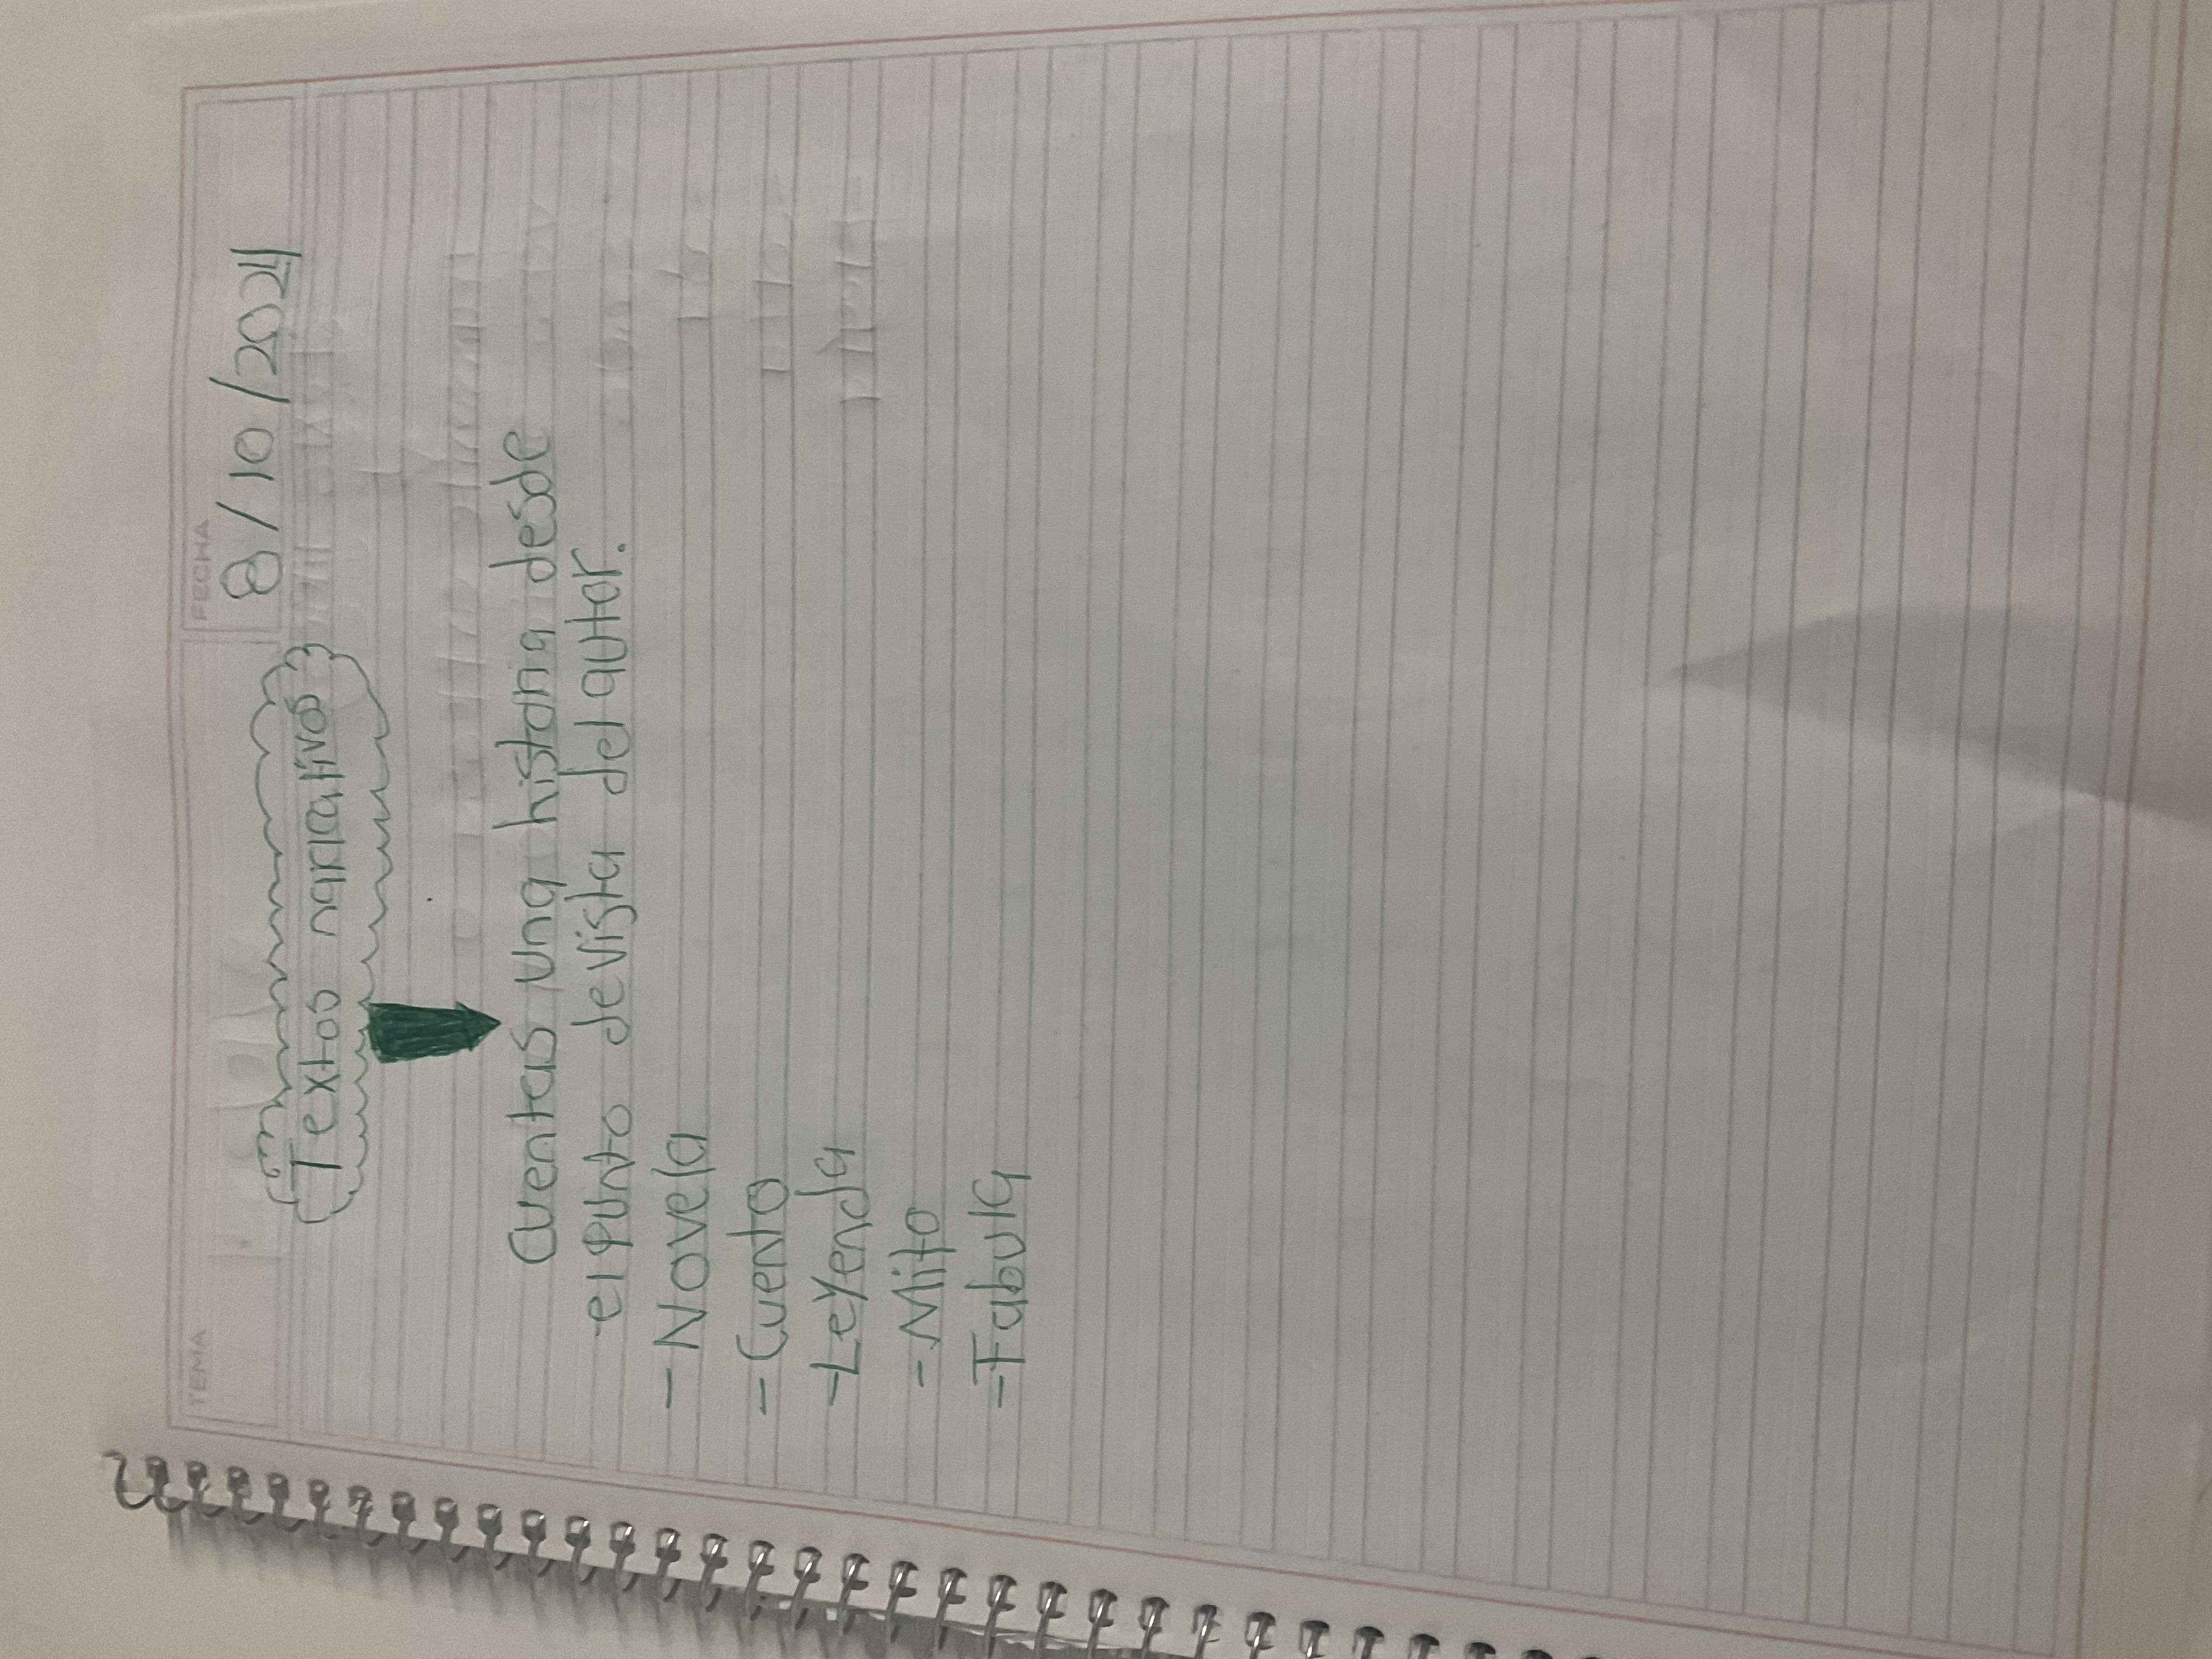 TEMA
FECHA
8/10/2024
Textos narrativos
Cuentas una historia desde
el punto de vista del autor.
- Novela
- Cuento
- Leyenda
- Mito
- Fabula